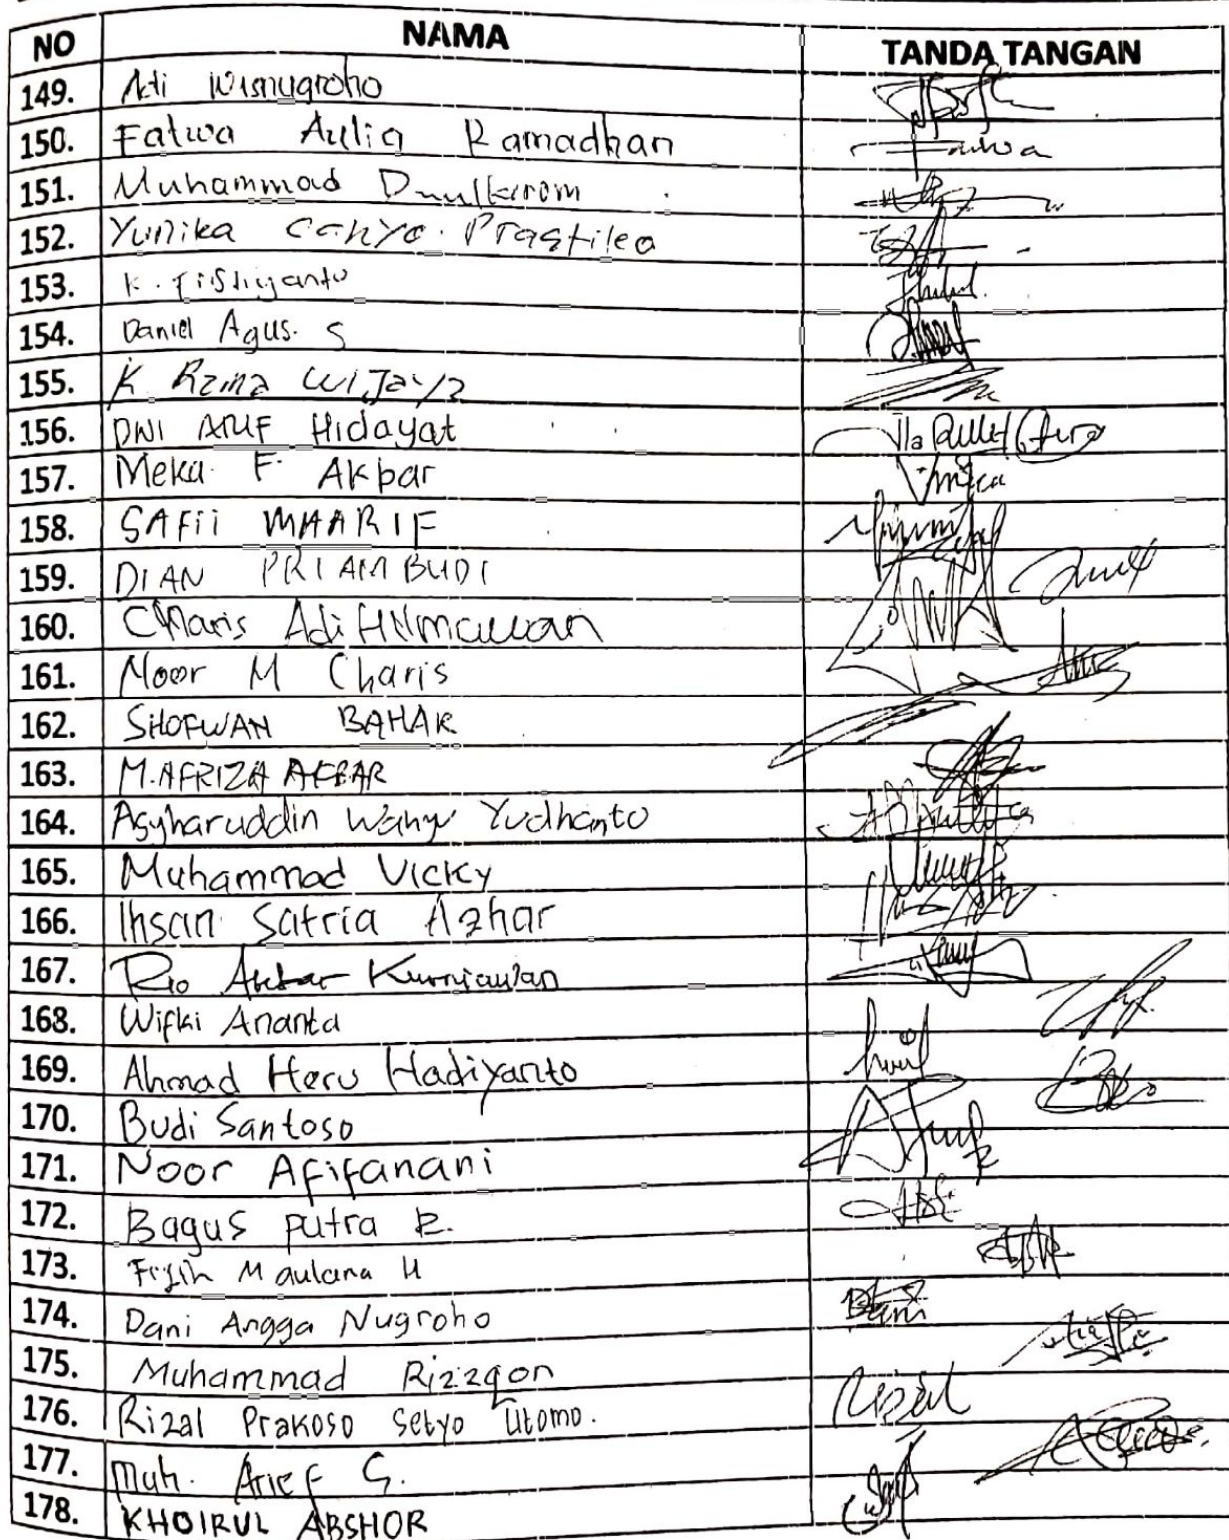 NO NAMA TANDA TANGAN
149. Adi Wisnugroho
150. Fatwa Aulia Ramadhan Fatwa
151. Muhammad
152. Yunika Cahyo Prastileo
153. K.
154. Daniel Agus. S
155. K Rama Wijaya
156. DWI ARIF Hidayat
157. Meka F. Akbar
158. SAFii MAARIF
159. DIAN PRIAMBUDI
160. Charis Adi Hilmawan
161. Noor M Charis
162. SHOFWAN BAHAR
163. M.AFRIZA AKBAR
164. Asyharuddin Wahyu Yudhanto
165. Muhammad Vicky
166. Ihsan Satria Azhar
167. Rio Akbar Kurniawan
168. Wifki Ananta
169. Ahmad Heru Hadiyanto
170. Budi Santoso
171. Noor Afifanani
172. Bagus putra R.
173. Maulana H
174. Dani Angga Nugroho Dani
175. Muhammad Rizzqon
176. Rizal Prakoso Setyo Utomo. Rizal
177. Muh. Arief S.
178. KHOIRUL ABSHOR